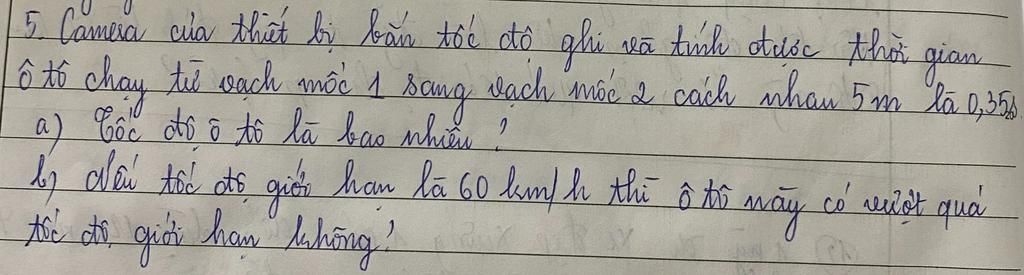 5. Camera của thiết bị bắn tốc độ ghi và tính được thời gian
ô tô chạy từ vạch mốc 1 sang vạch mốc 2 cách nhau 5m là 0,35s
a) Tốc độ ô tô là bao nhiêu?
b) Nếu tốc độ giới hạn là 60 km/h thì ô tô này có vượt quá
tốc độ giới hạn không?